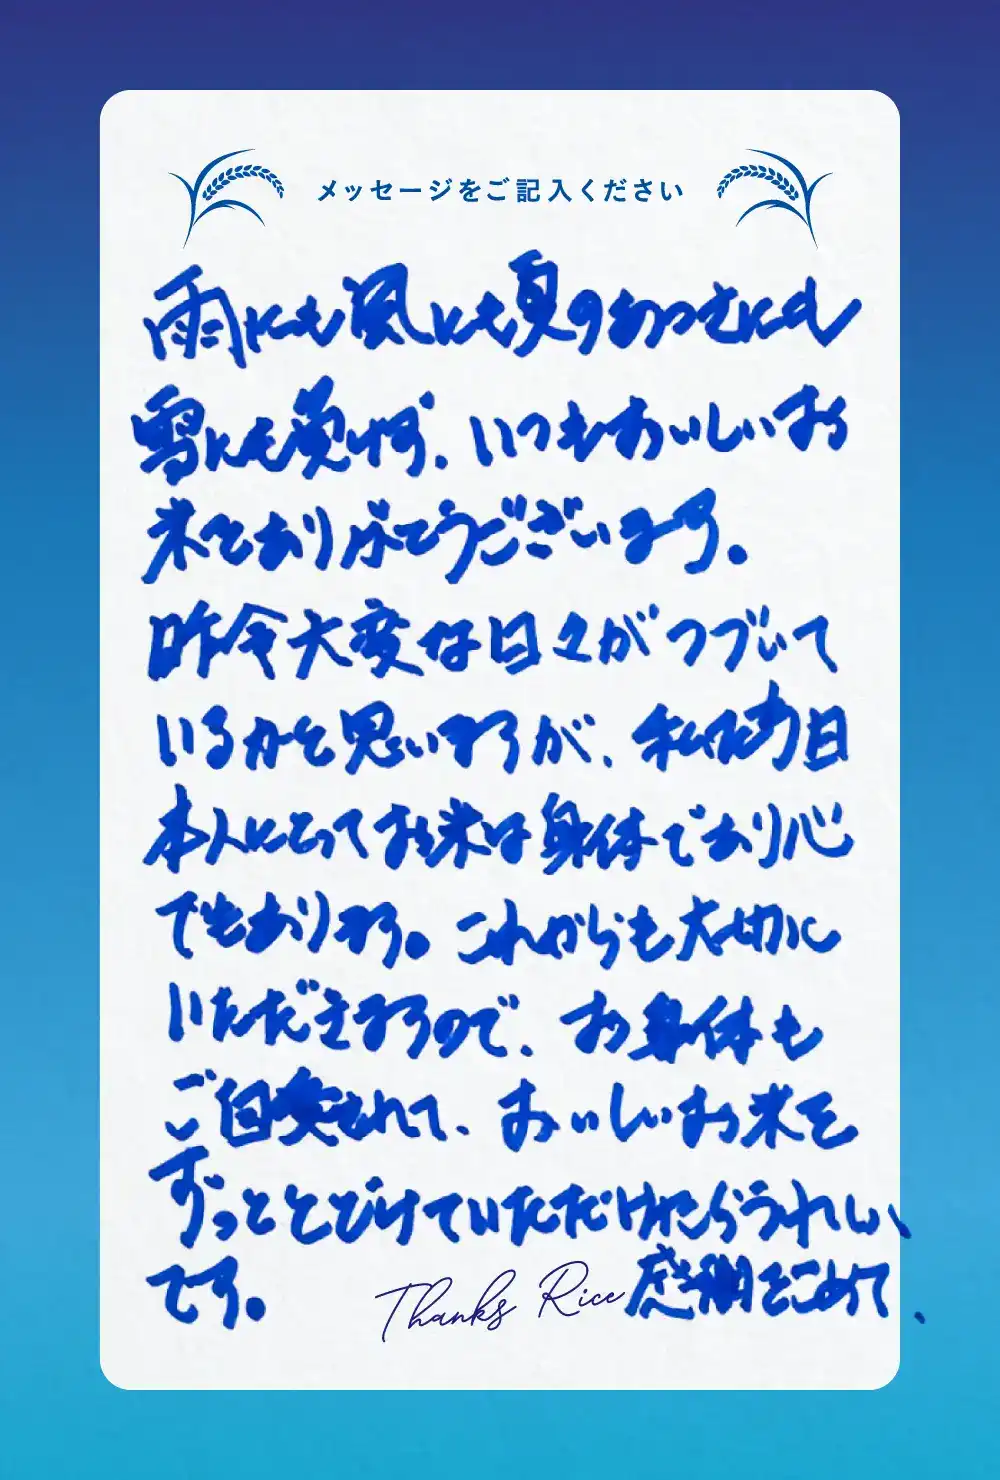 メッセージをご記入ください
雨にも風にも夏のあつさにも
雪にも負けず、いつもおいしいお
米をありがとうございます。
昨今大変な日々がつづいて
いるかと思いますが、私たち日
本人にとってお米は身体であり心
でもあります。これからも大切に
いただきますので、お身体も
ご自愛されて、おいしいお米を
ずっととどけていただけたらうれしい
です。
Thanks Rice
感謝をこめて、